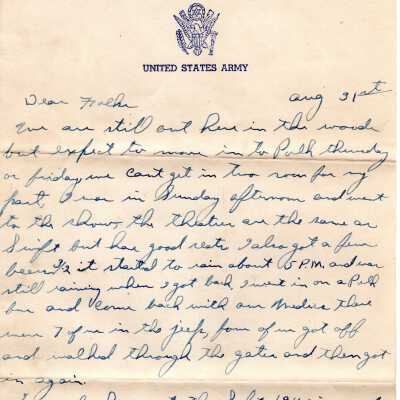 UNITED STATES ARMY
Dear Folks
Aug 31st
We are still out here in the woods
but expect to move in to Polk thursday
or friday, we cant get in two soon for my
part I was in Sunday afternoon and went
to the show, the theaters are the same as
Swift but has good seats I also got a few
beers it started to rain about 5 P.M. and was
still raining when I got back I went in on a Polk
bus and come back with our Medics there
were 7 of us in the jeep, four of us got off
and walked through the gates and then got
in again.